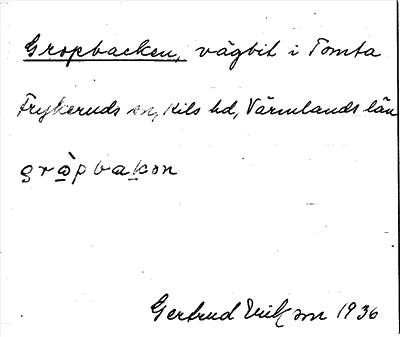 Gropbacken, vägbit i Tomta
Frykeruds sn, Kils hd, Värmlands län
grò̲pbak̲ən
Gertrud Erikson 1936